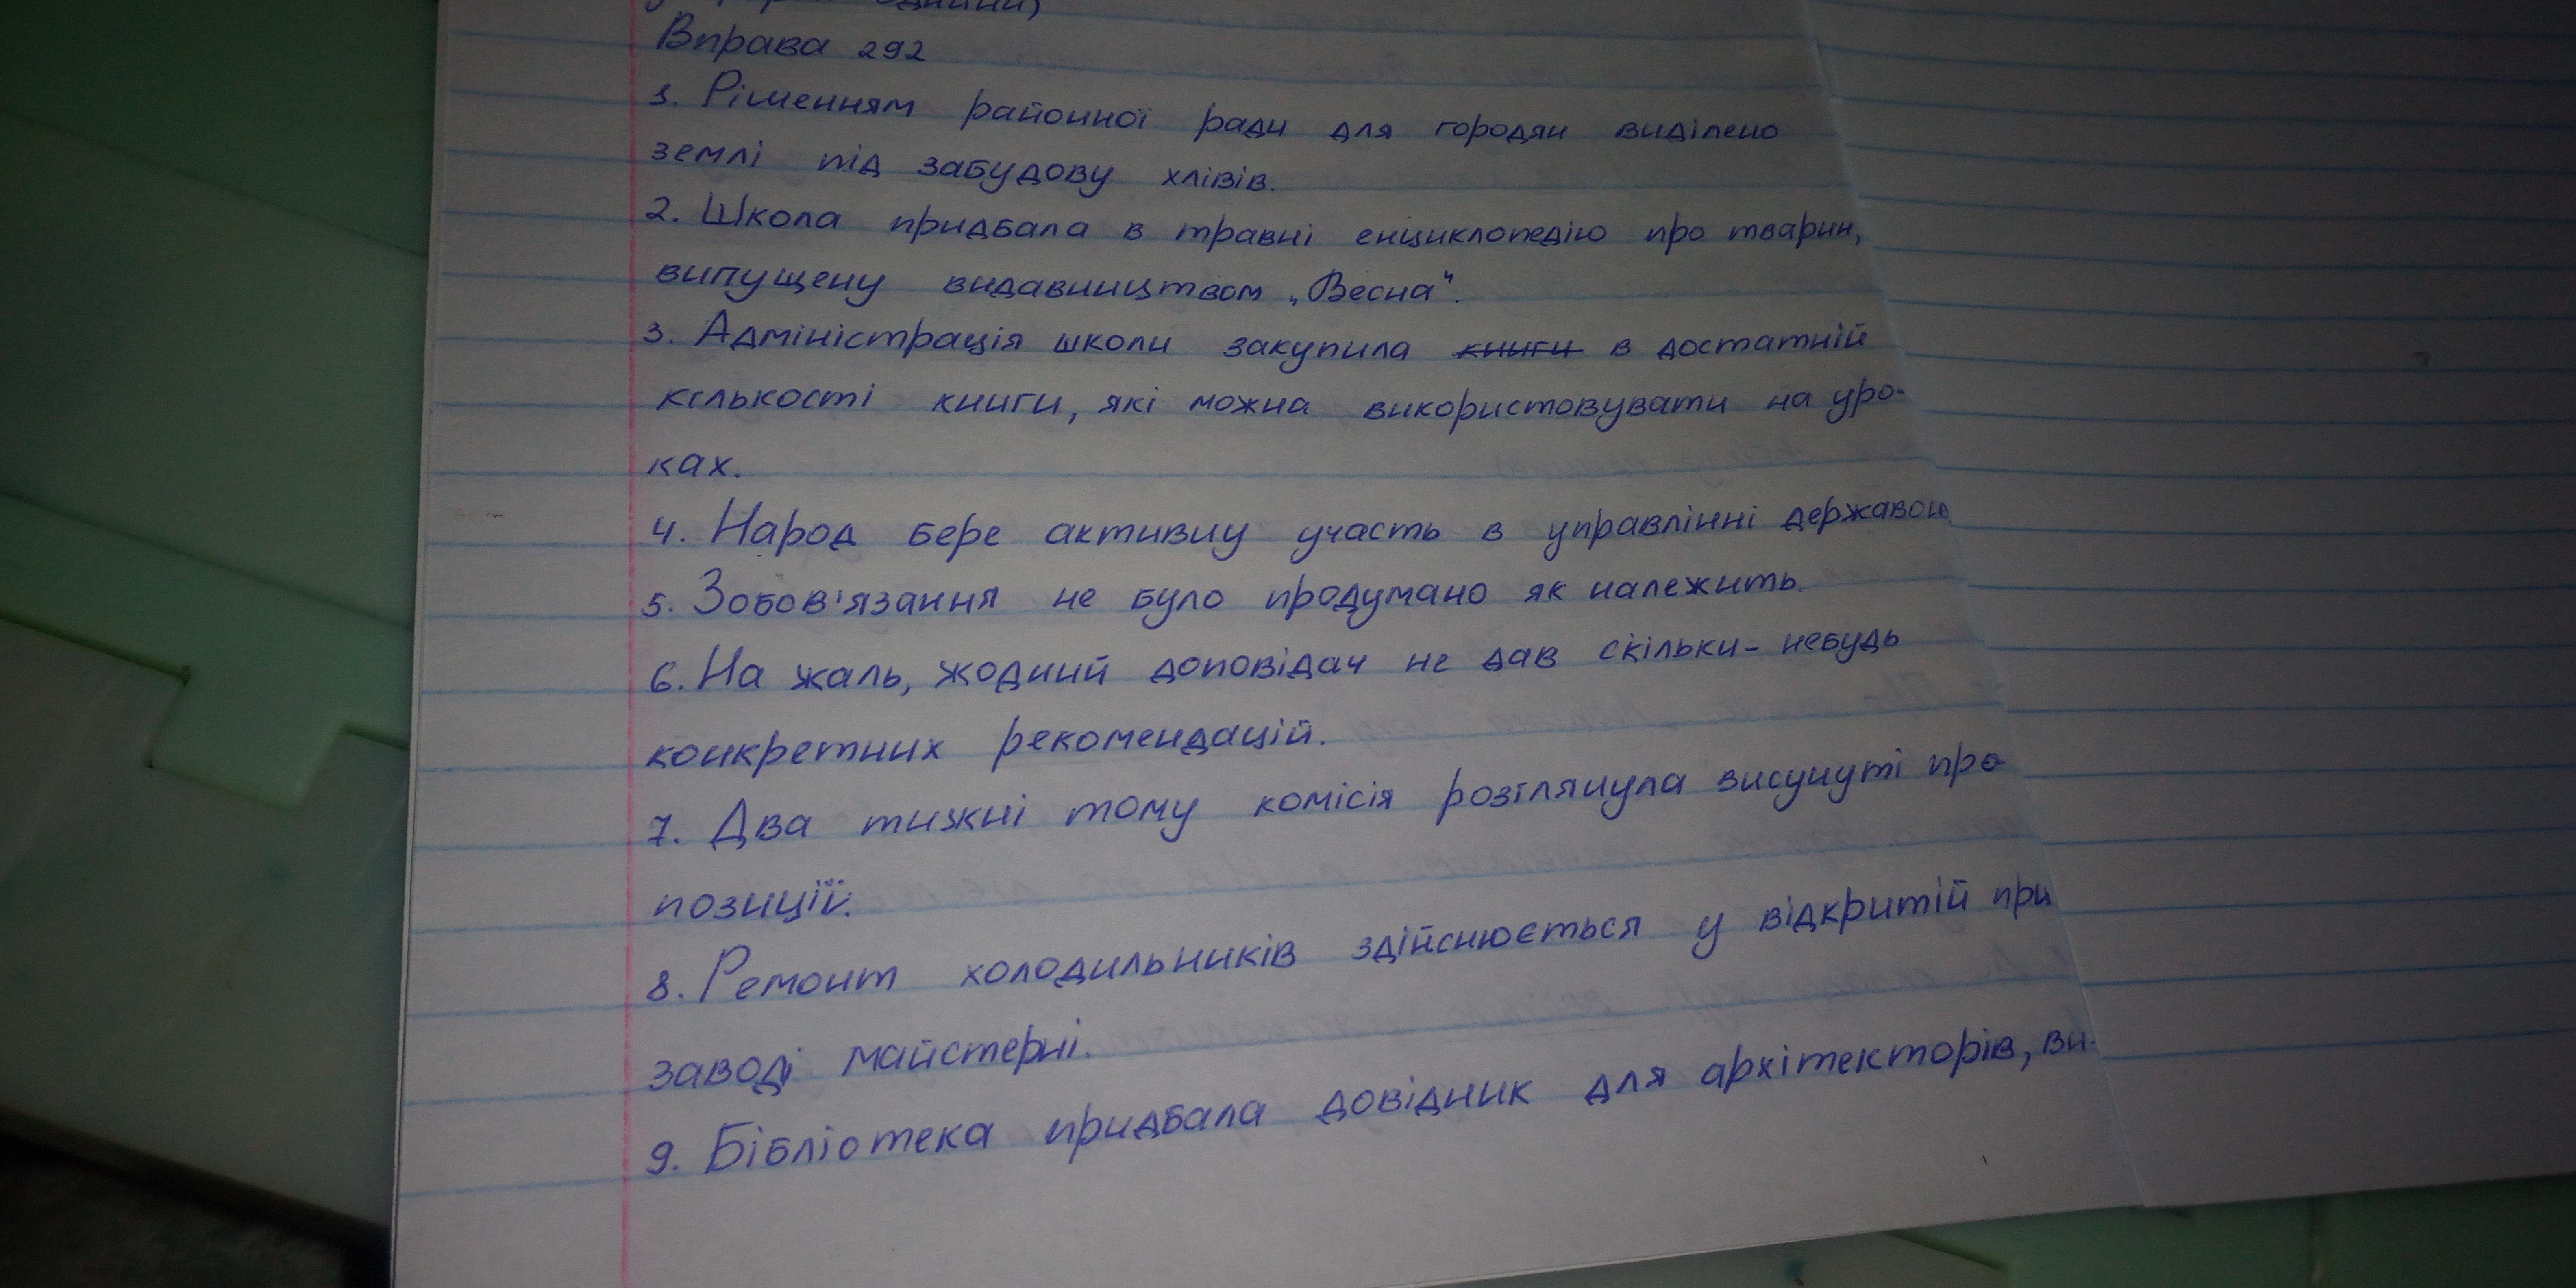 Вправа 292
1. Рішенням районної ради для городян виділено
землі під забудову хлівів.
2. Школа придбала в травні енциклопедію про тварин,
випущену видавництвом „Весна".
3. Адміністрація школи закупила книги в достатній
кількості книги, які можна використовувати на уро-
ках.
4. Народ бере активну участь в управлінні державою
5. Зобов'язання не було продумано як належить.
6. На жаль, жодний доповідач не дав скільки-небудь
конкретних рекомендацій.
7. Два тижні тому комісія розглянула висунуті про
позиції.
8. Ремонт холодильників здійснюється у відкритій при
заводі майстерні.
9. Бібліотека придбала довідник для архітекторів, ви-